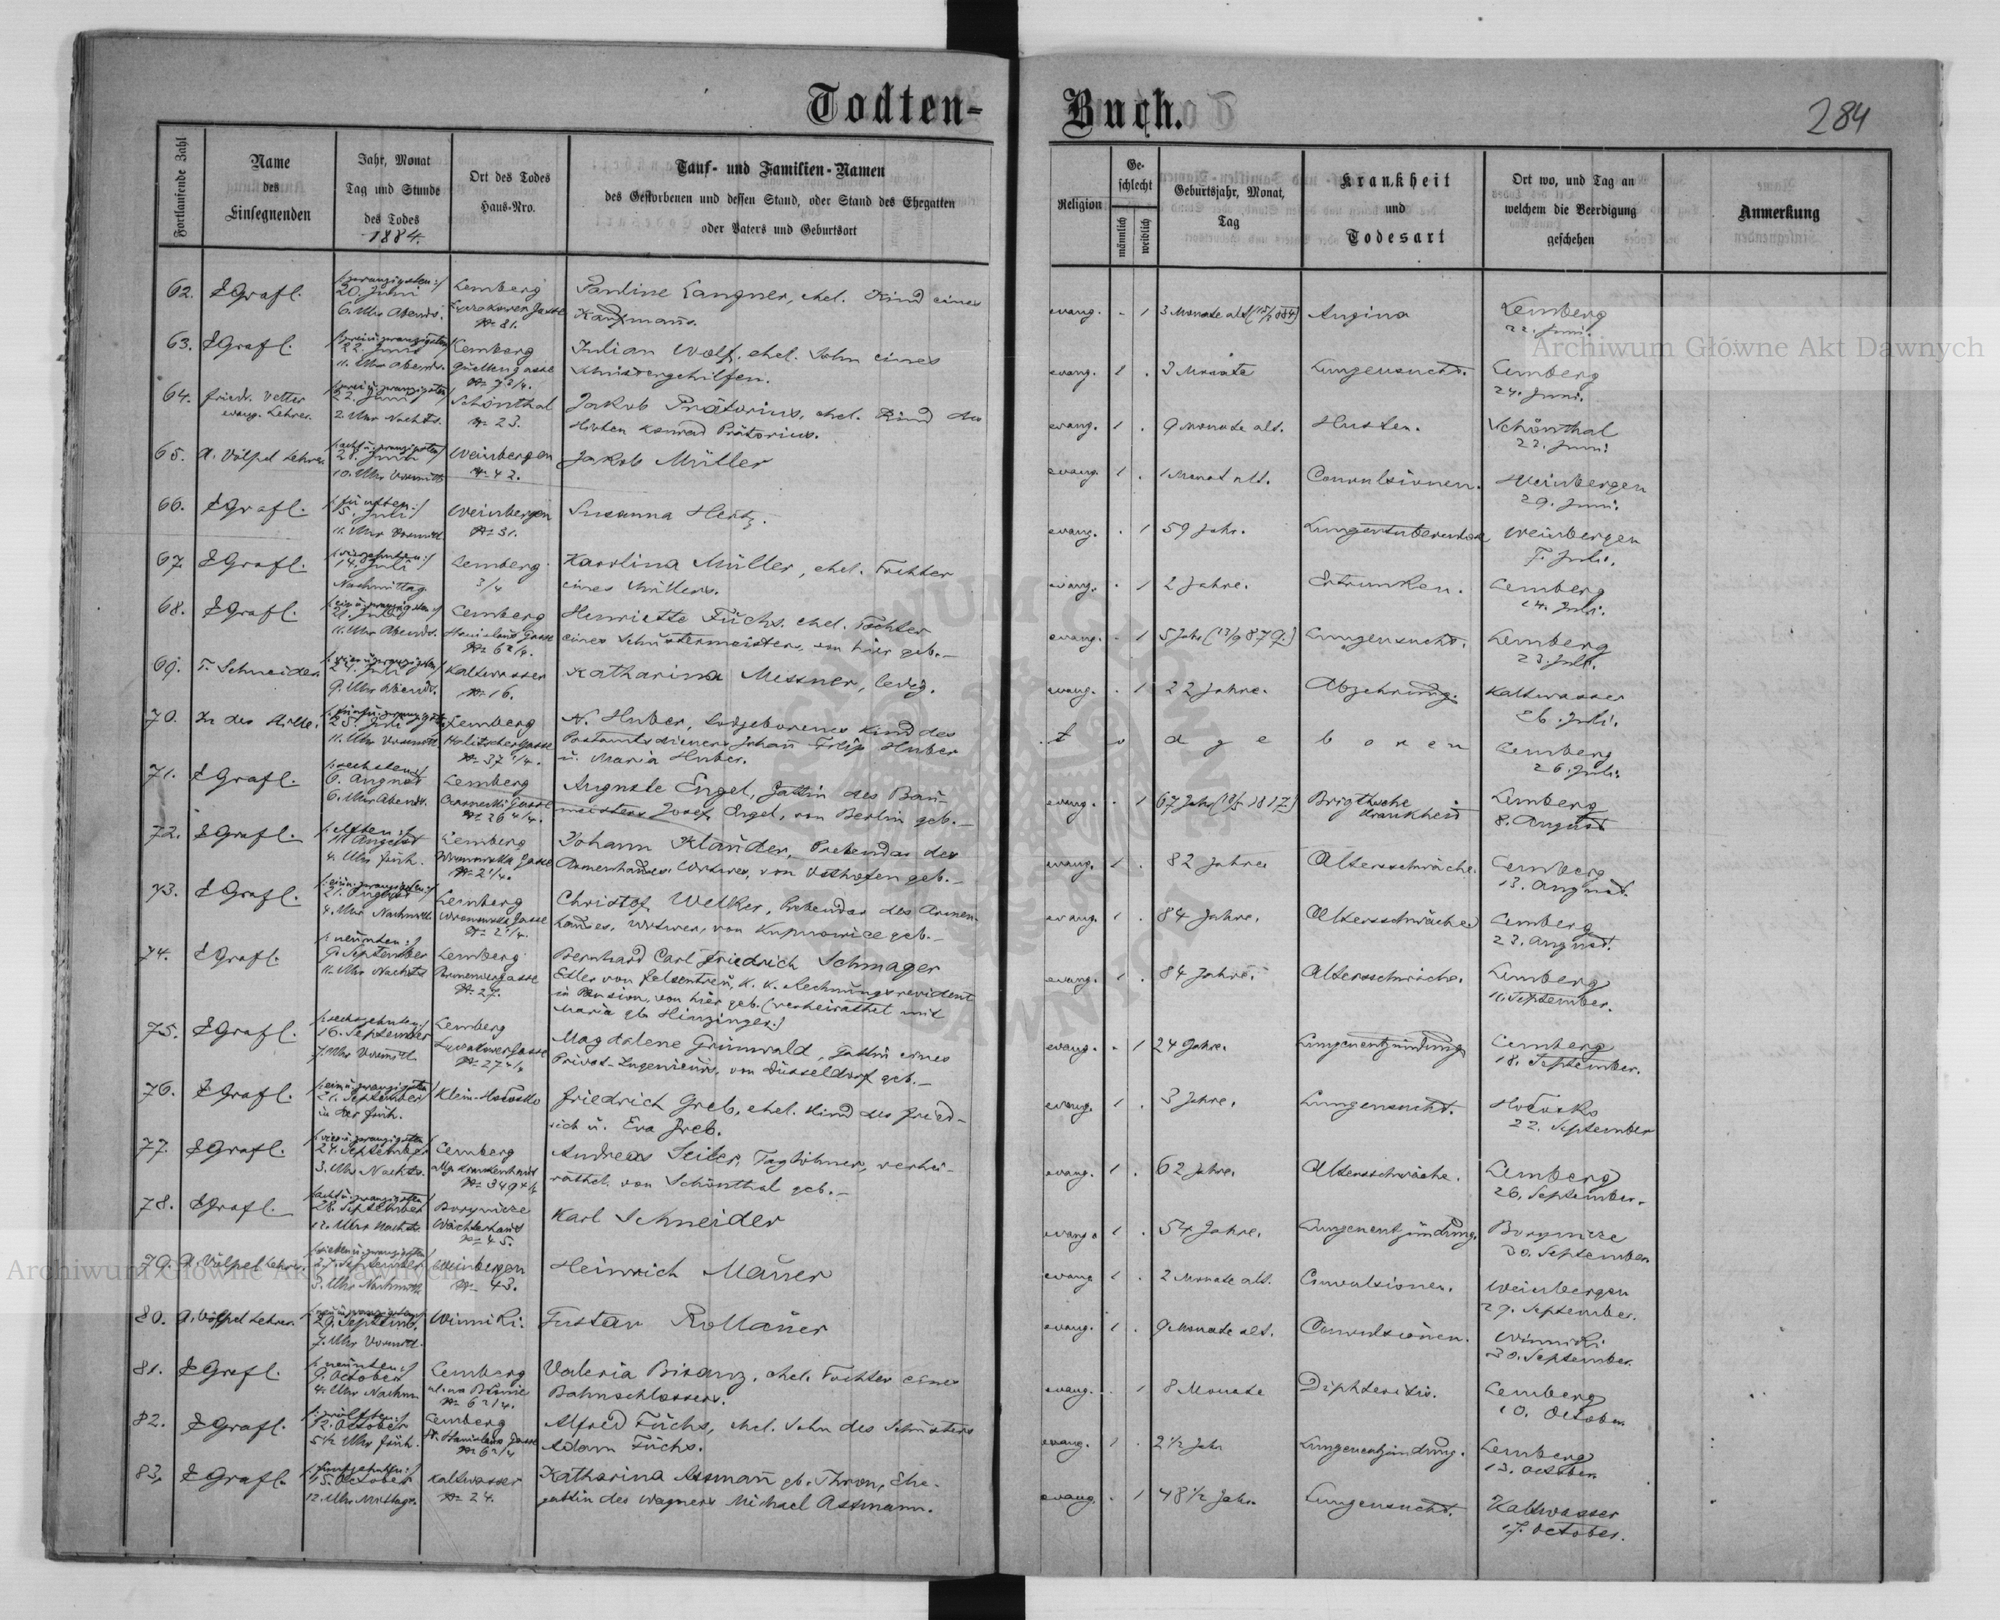 Todten-
Buch.
284
Fortlaufende Zahl
Name
des
Einsegnenden
Jahr, Monat
Tag und Stunde
des Todes
1884.
Ort des Todes
Haus-Nro.
Tauf- und Familien-Namen
des Gestorbenen und dessen Stand, oder Stand des Ehegatten
oder Vaters und Geburtsort
Religion
Ge-
schlecht
männlich
weiblich
Geburtsjahr, Monat,
Tag
Krankheit
und
Todesart
Ort wo, und Tag an
welchem die Beerdigung
geschehen
Anmerkung
62. Grafl. 20. Juni 6. Uhr Abends. Lemberg Lyczakower Gasse № 81.
Pauline Langner, ehel. Kind eines
Kaufmanns.
evang. - 1 3 Monate alt Angina Lemberg 22. Juni.
63. Grafl. 22. Juni 11. Uhr Abends. Lemberg Quellengasse № 7 3/4.
Julian Wolf, ehel. Sohn eines
Schneidergehilfen.
evang. 1 . 3 Monate Lungensucht. Lemberg 24. Juni.
64. Friedr. Vetter evang. Lehrer. 22. Juni 2. Uhr Nachts. Schönthal № 23.
Jakob Prätorius, ehel. Kind des
Hirten Konrad Prätorius.
evang. 1 . 9 Monate alt. Husten. Schönthal 22. Juni.
65. A. Völpel Lehrer 28. Juni 10. Uhr Vormitt. Weinbergen № 42.
Jakob Müller
evang. 1 . 1 Monat alt. Convulsionen. Weinbergen 29. Juni.
66. Grafl. /: fünften :/ 5. Juli 11. Uhr Vormitt. Weinbergen № 31.
Susanna Hertz.
evang. . 1 59 Jahr. Lungentuberculose Weinbergen 7. Juli.
67 Grafl. /: vierzehnten :/ 14. Juli Nachmittag Lemberg 3/4
Karolina Müller, ehel. Tochter
eines Müllers.
evang. . 1 2 Jahre. Ertrunken. Lemberg 14. Juli.
68. Grafl. 21. Juli 11. Uhr Abends. Lemberg № 6 2/4.
Henriette Füchs, ehel. Tochter
eines Schustermeisters, von hier geb.—
evang. - 1 5 Jahr (13/9 879.) Lungensucht. Lemberg 23. Juli.
69. F. Schneider. 24. Juli 9. Uhr Abends. Kaltwasser № 16.
Katharina Messner, ledig.
evang. . 1 22 Jahre. Abzehrung. Kaltwasser 26. Juli.
70. In der Stille. 25. Juli 11. Uhr Vormitt. Lemberg Halitschergasse № 37 1/4.
N. Huber, todtgeborenes Kind des
Postamtsdieners Johañ Filip Huber
u. Maria Huber.
t o d g e b o r e n Lemberg 26. Juli.
71. Grafl. /: sechsten :/ 6. August 6. Uhr Abends. Lemberg № 26 4/4.
Auguste Engel, Gattin des Bau-
meisters Josef Engel, von Berlin geb.—
evang. . 1 67 Jahr Brigthsche Krankheit Lemberg 8. August
72. Grafl. /: elften :/ 11 August 4. Uhr früh. Lemberg № 2 1/4.
Johann Klauder, Prebendar des
Armenhauses, Witwer, von Osthofen geb.—
evang. 1 . 82 Jahre Altersschwäche. Lemberg 13. August.
73. Grafl. 21. August 4. Uhr Nachmitt. Lemberg № 2 1/4.
Christof Welker, Prebendar des Armen-
hauses, Witwer, von Kupnowice geb.—
evang. 1 . 84 Jahre. Altersschwäche Lemberg 23. August.
74. Grafl. /: neunten :/ 9. September 11. Uhr Nachts Lemberg № 27.
Bernhard Carl Friedrich Schmager
Edler von Felsentreu, k. k. Rechnungsrevident
in Pension, von hier geb. (verheirathet mit
Maria geb. Hinzinger.)
evang. 1 . 84 Jahre. Altersschwäche. Lemberg 11. September.
75. Grafl. /: sechszehnten :/ 16. September 7. Uhr Vormitt. Lemberg Lyczakower Gasse
Magdalene Grünwald, Gattin eines
Privat-Ingenieurs, von Düsseldorf geb.—
evang. - 1 24 Jahre. Lungenentzündung Lemberg 18. September.
76. Grafl. 21. September in der früh. Klein-Hołosko
Friedrich Greb, ehel. Kind des Fried-
rich u. Eva Greb.
evang. 1 . 3 Jahre. Lungensucht. Hołosko 22. September
77. Grafl. 24. September 3. Uhr Nachts. Lemberg Allg. Krankenhaus
Andreas Seiler, Taglöhner, verhei-
rathet. von Schönthal geb.—
evang. 1 . 62 Jahre. Altersschwäche. Lemberg 26. September.
78. Grafl. 28. September 12. Uhr Nachts Borynicze Wächterhaus № 45.
Karl Schneider
evang. 1 . 54 Jahre. Lungenentzündung. Borynicze 30. September
79. A. Völpel Lehrer. 27. September 3. Uhr Nachmitt. Weinbergen № 43.
Heinrich Mauer
evang 1 . 2 Monate alt. Convulsionen. Weinbergen 29. September.
80. A. Völpel Lehrer. 29. Septemb. 7. Uhr Vormitt. Winniki.
Gustav Rollauer
evang. 1 . 9 Monate alt. Convulsionen. Winniki 30. September.
81. Grafl. /: neunten :/ 9. October 4. Uhr Nachm. Lemberg ul. na Błonie № 6 2/4.
Valeria Bisanz, ehel. Tochter eines
Bahnschlossers.
evang. . 1 8 Monate Diphteritis. Lemberg 10. October
82. Grafl. /: zwölften :/ 12. October 5 1/2 Uhr früh. Lemberg St. Stanislaus Gasse № 6 2/4
Alfred Füchs, ehel. Sohn des Schusters
Adam Füchs.
evang. 1 . 2 1/2 Jahr Lungenentzündung. Lemberg 13. October.
83. Grafl. /: fünfzehnten :/ 15. October 12. Uhr Mittags. Kaltwasser № 24.
Katharina Assmañ geb. Thron, Ehe-
gattin des Wagners Michael Assmann.
evang. . 1 48 1/2 Jahr. Lungensucht. Kaltwasser 17. October.
Archiwum Główne Akt Dawnych
Archiwum Główne Akt Dawnych